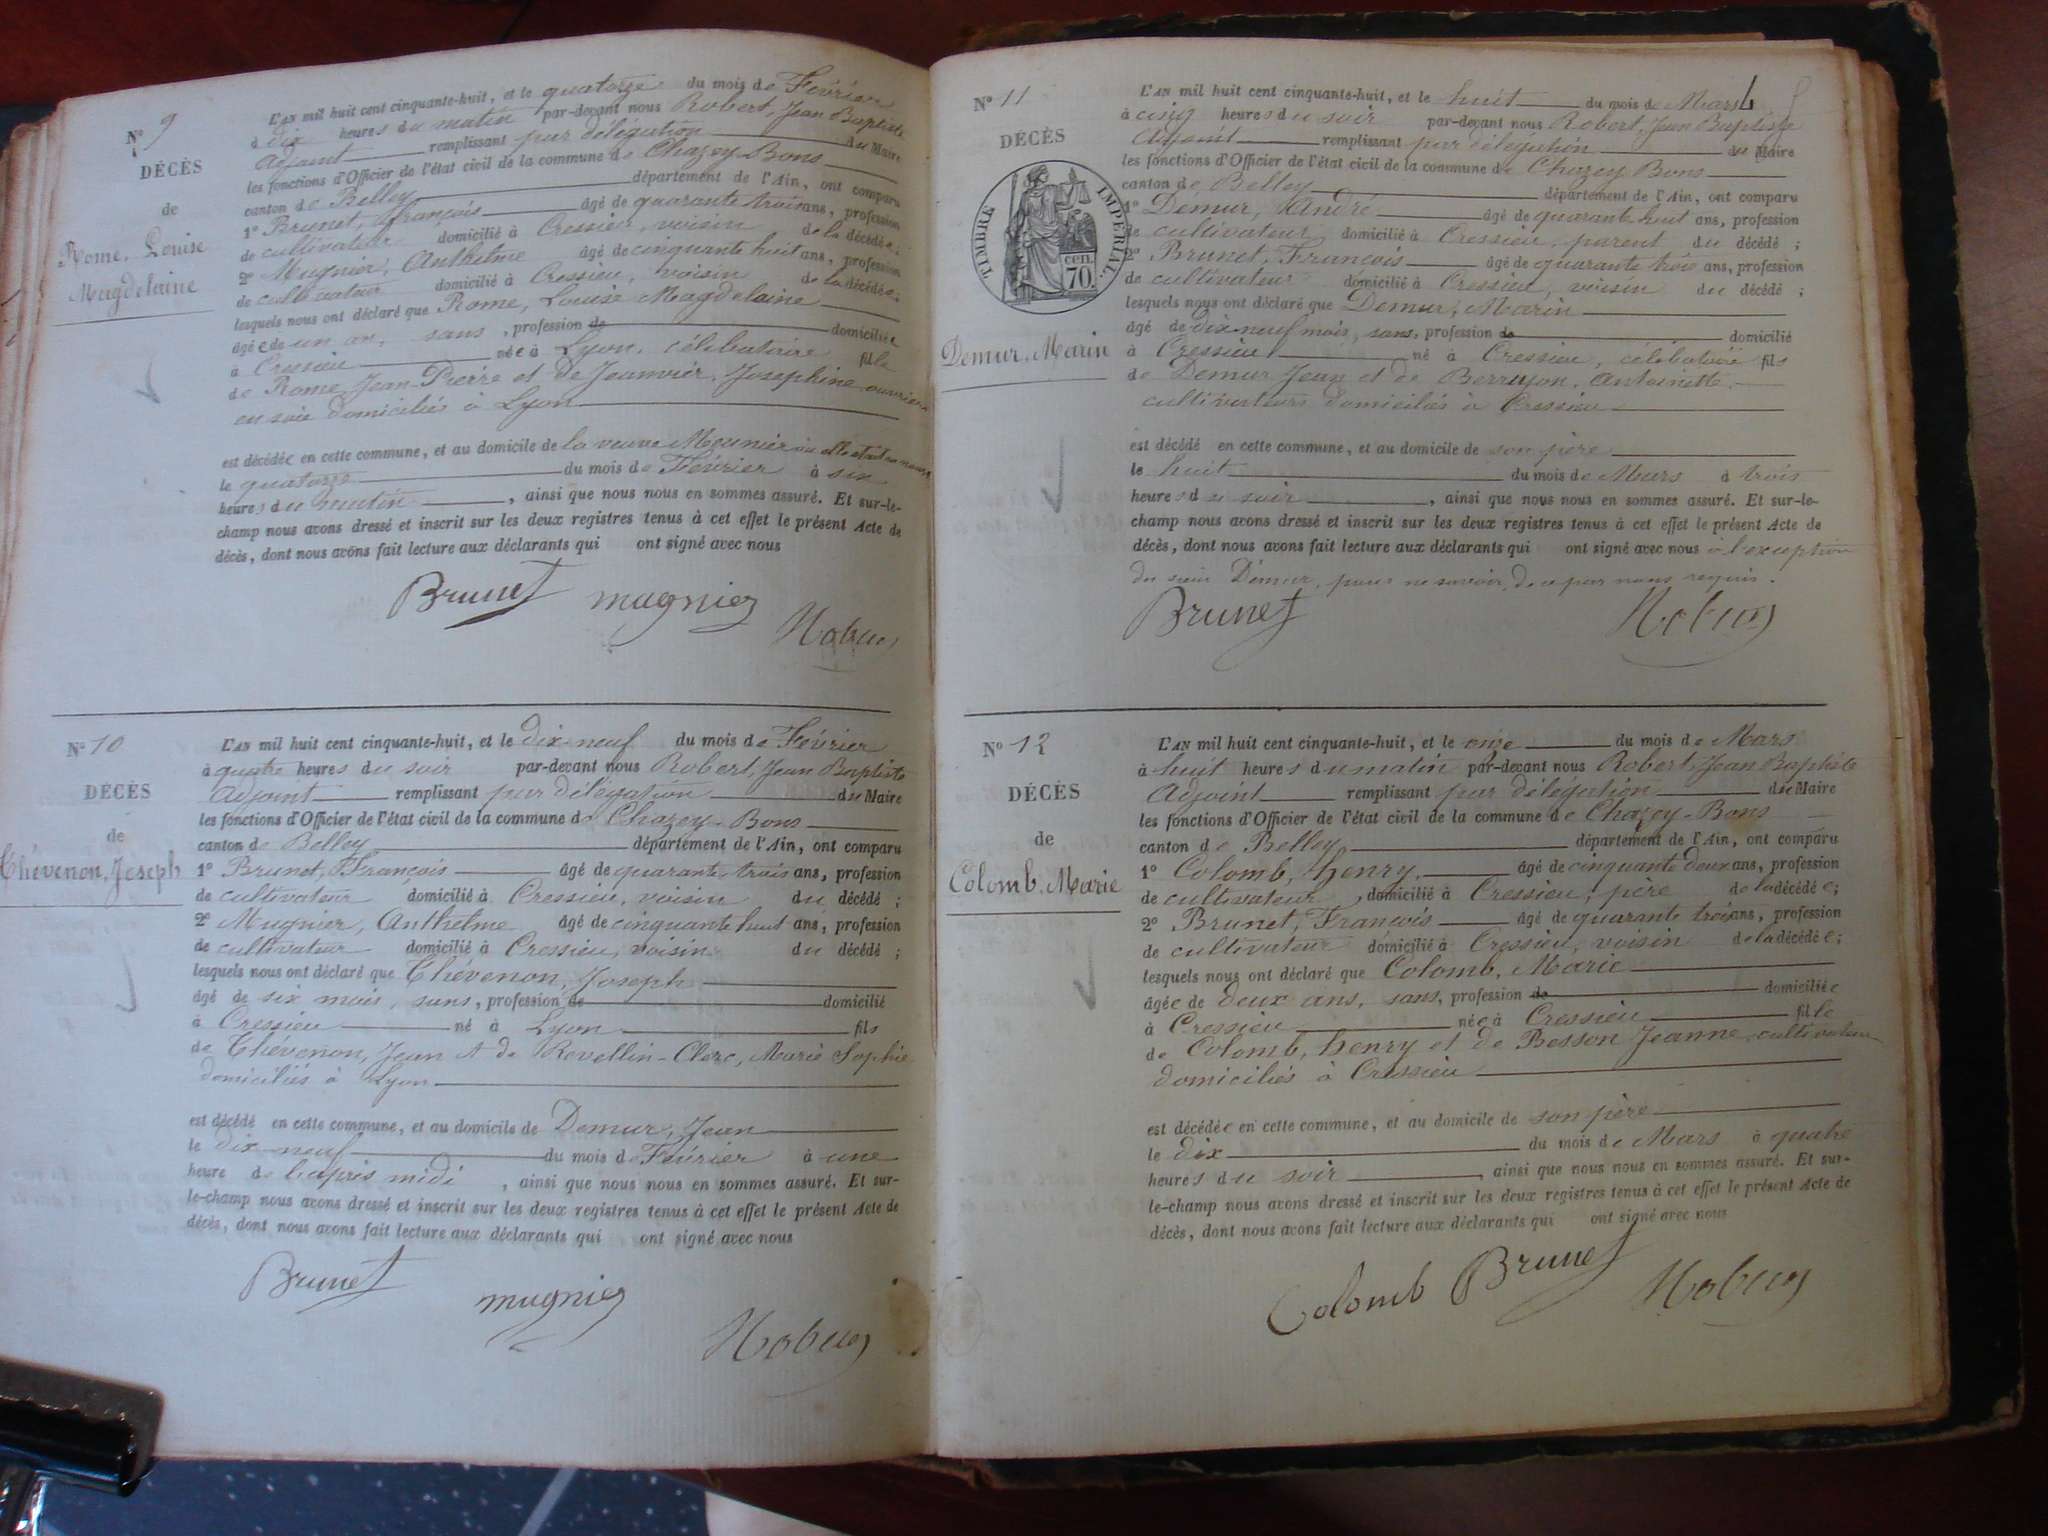 N° 9
DÉCÈS
de
Rome, Louise
Magdelaine
L'AN mil huit cent cinquante-huit, et le quatorze du mois de Février
à dix heures du matin par-devant nous Robert, Jean Baptiste
Adjoint remplissant par délégation du Maire
les fonctions d'Officier de l'état civil de la commune de Chazey-Bons
canton de Belley département de l'Ain, ont comparu
1° Brunet, François âgé de quarante trois ans, profession
de cultivateur domicilié à Cressieu, voisin de la décédée;
2° Mugnier, Anthelme âgé de cinquante huit ans, profession
de cultivateur domicilié à Cressieu, voisin de la décédée;
lesquels nous ont déclaré que Rome, Louise Magdelaine
âgée de un an, sans, profession de domiciliée
à Cressieu née à Lyon, célibataire fille
de Rome, Jean Pierre et de Jeanvier, Josephine ouvriers
en soie domiciliés à Lyon
est décédée en cette commune, et au domicile de la veuve Meunier où elle était en nourrice
le quatorze du mois de Février à six
heures du matin, ainsi que nous nous en sommes assuré. Et sur-le-
champ nous avons dressé et inscrit sur les deux registres tenus à cet effet le présent Acte de
décès, dont nous avons fait lecture aux déclarants qui ont signé avec nous
Brunet mugnier
N° 10
DÉCÈS
de
Chévenon, Joseph
L'AN mil huit cent cinquante-huit, et le dix-neuf du mois de Février
à quatre heures du soir par-devant nous Robert, Jean Baptiste
Adjoint remplissant par délégation du Maire
les fonctions d'Officier de l'état civil de la commune de Chazey-Bons
canton de Belley département de l'Ain, ont comparu
1° Brunet, François âgé de quarante-trois ans, profession
de cultivateur domicilié à Cressieu, voisin du décédé;
2° Mugnier, Anthelme âgé de cinquante huit ans, profession
de cultivateur domicilié à Cressieu, voisin du décédé;
lesquels nous ont déclaré que Chévenon, Joseph
âgé de six mois, sans, profession de domicilié
à Cressieu né à Lyon fils
de Chévenon, Jean et de Revellin-Clerc, Marie Sophie
domiciliés à Lyon
est décédé en cette commune, et au domicile de Demur, Jean
le dix-neuf du mois de Février à une
heure de l'après midi, ainsi que nous nous en sommes assuré. Et sur-
le-champ nous avons dressé et inscrit sur les deux registres tenus à cet effet le présent Acte de
décès, dont nous avons fait lecture aux déclarants qui ont signé avec nous
Brunet mugnier
N° 11
DÉCÈS
TIMBRE IMPÉRIAL.
cen.
70.
Demur, Marin
L'AN mil huit cent cinquante-huit, et le huit du mois de Mars
à cinq heures du soir par-devant nous Robert, Jean Baptiste
Adjoint remplissant par délégation du Maire
les fonctions d'Officier de l'état civil de la commune de Chazey Bons
canton de Belley département de l'Ain, ont comparu
1° Demur, André âgé de quarante huit ans, profession
de cultivateur domicilié à Cressieu, parent du décédé;
2° Brunet, François âgé de quarante trois ans, profession
de cultivateur domicilié à Cressieu, voisin du décédé;
lesquels nous ont déclaré que Demur, Marin
âgé de dix-neuf mois, sans, profession de domicilié
à Cressieu né à Cressieu, célibataire fils
de Demur Jean et de Berruyon, Antoinette
cultivateurs domiciliés à Cressieu
est décédé en cette commune, et au domicile de son père
le huit du mois de Mars à trois
heures du soir, ainsi que nous nous en sommes assuré. Et sur-le-
champ nous avons dressé et inscrit sur les deux registres tenus à cet effet le présent Acte de
décès, dont nous avons fait lecture aux déclarants qui ont signé avec nous à l'exception
du sieur Demur, pour ne savoir, de ce par nous requis.
Brunet
N° 12
DÉCÈS
de
Colomb, Marie
L'AN mil huit cent cinquante-huit, et le onze du mois de Mars
à huit heures du matin par-devant nous Robert, Jean Baptiste
Adjoint remplissant par délégation du Maire
les fonctions d'Officier de l'état civil de la commune de Chazey-Bons
canton de Belley département de l'Ain, ont comparu
1° Colomb, henry, âgé de cinquante deux ans, profession
de cultivateur domicilié à Cressieu, père de la décédée;
2° Brunet, François âgé de quarante trois ans, profession
de cultivateur domicilié à Cressieu, voisin de la décédée;
lesquels nous ont déclaré que Colomb, Marie
âgée de deux ans, sans, profession de domiciliée
à Cressieu née à Cressieu fille
de Colomb, henry et de Besson Jeanne, cultivateurs
domiciliés à Cressieu
est décédée en cette commune, et au domicile de son père
le dix du mois de Mars à quatre
heures du soir, ainsi que nous nous en sommes assuré. Et sur-
le-champ nous avons dressé et inscrit sur les deux registres tenus à cet effet le présent Acte de
décès, dont nous avons fait lecture aux déclarants qui ont signé avec nous
Colomb Brunet